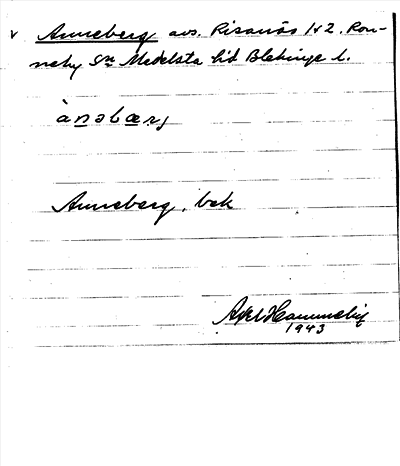 v Anneberg avs. Risanäs 1/2 2. Ron-
neby sn Medelsta hd Blekinge l.
ànəbær,j
Anneberg, bek
Axel Hammelig
1943